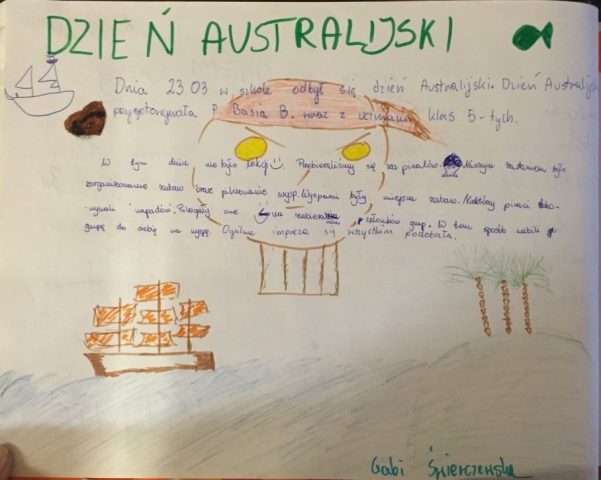 DZIEŃ AUSTRALIJSKI
Dnia 23.03 w szkole odbył się dzień Australijski. Dzień Australijs
przygotowała P. Basia B. wraz z uczniami klas 5-tych.
W tym dniu nie było lekcji. Przebieraliśmy się za piratów. Naszym zadaniem było
zorganizowanie zabaw oraz pilnowanie wysp. Wyspami były miejsca zabaw. Niektórzy piraci
napadów. Polegały one na członków grup. W ten sposób wabili
grupę do siebie na wyspę. Ogólnie impreza się wszystkim podobała.
Gabi Świerczewska